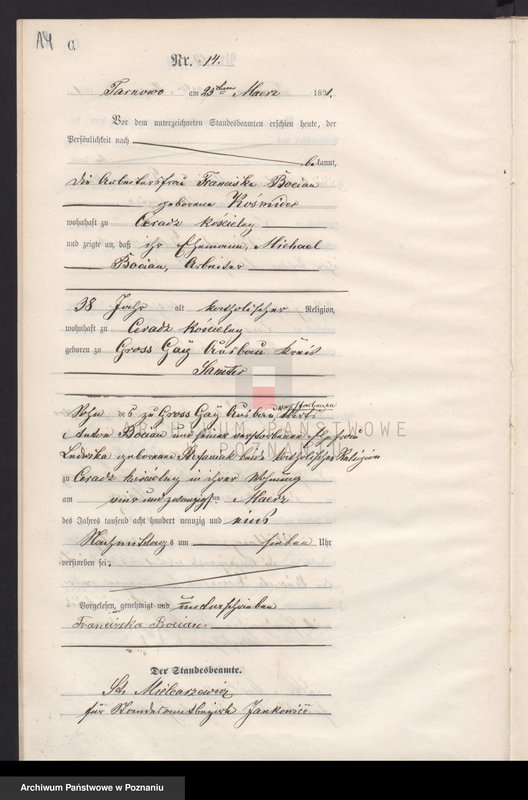 14 C.
Nr. 14.
Tarnowo am 25ten Maerz 1891.
Vor dem unterzeichneten Standesbeamten erschien heute, der
Persönlichkeit nach
bekannt,
die Arbeitersfrau Franciska Bocian
geborene Kośmider
wohnhaft zu Ceradz kościelny
und zeigte an, daß ihr Ehemann, Michael
Bocian, Arbeiter
38 Jahr alt katholischer Religion,
wohnhaft zu Ceradz Kościelny
geboren zu Gross Gay Ausbau Kreis
Samter
Sohn des zu Gross Gay Ausbau verstorbenen Wirts
Anton Bocian und seiner verstorbenen Ehefrau
Ludwika geborene Stefaniak beide katholischer Religion
zu Ceradz kościelny in ihrer Wohnung
am vier und zwanzigsten Maerz
des Jahres tausend acht hundert neunzig und eins
Nachmittags um sieben Uhr
verstorben sei.
Vorgelesen, genehmigt und unterschrieben
Franciska Bocian.
Der Standesbeamte.
Mielcarzewicz
für Standesamtsbezirk Jankowice
ARCHIWUM PAŃSTWOWE
W POZNANIU
Archiwum Państwowe w Poznaniu